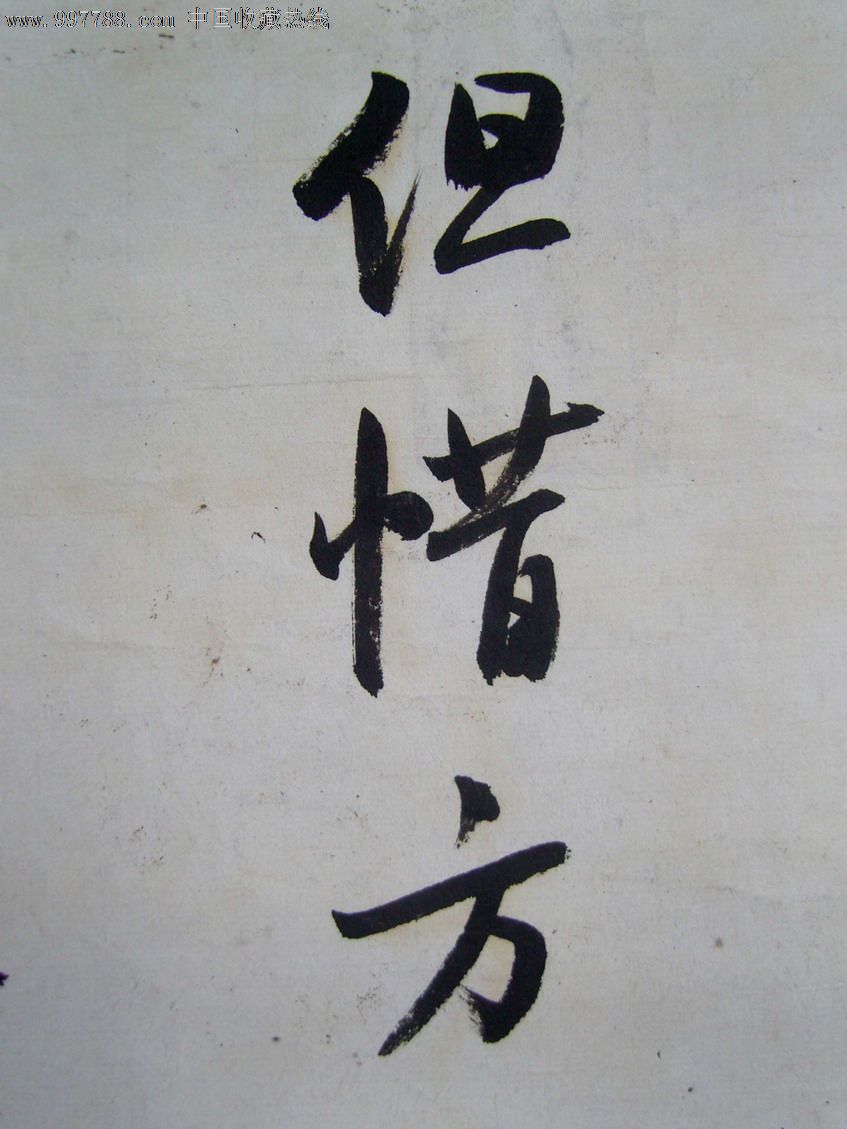 www.997788.com 中国收藏热线
但惜方